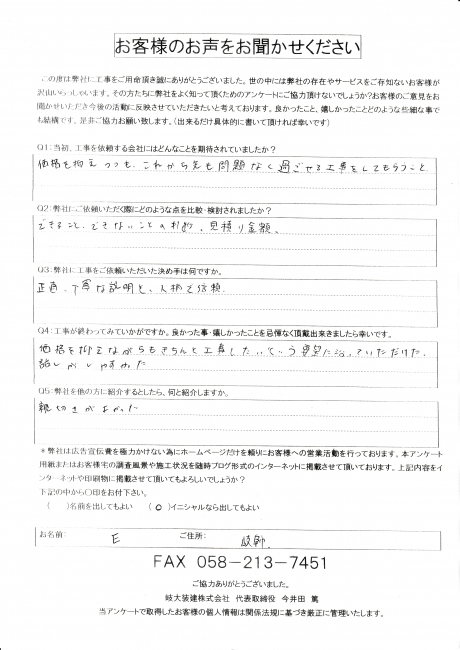 お客様のお声をお聞かせください
この度は弊社に工事をご用命頂き誠にありがとうございました。世の中には弊社の存在やサービスをご存知ないお客様が
沢山いらっしゃいます。その方たちに弊社をよく知って頂くためのアンケートにご協力頂けないでしょうか?お客様のご意見をお
聞かせいただき今後の活動に反映させていただきたいと考えております。良かったこと、嬉しかったことどのような些細な事で
も結構です。是非ご協力お願い致します。(出来るだけ具体的に書いて頂ければ幸いです)
Q1:当初、工事を依頼する会社にはどんなことを期待されていましたか?
価格を抑えつつも、これから先も問題なく過ごせる工事をしてもらうこと
Q2:弊社にご依頼いただく際にどのような点を比較・検討されましたか?
できること、できないことの判断、見積り金額、
Q3:弊社に工事をご依頼いただいた決め手は何ですか。
正直、丁寧な説明と、人柄と信頼
Q4:工事が終わってみていかがですか。良かった事・嬉しかったことを忌憚なく頂戴出来きましたら幸いです。
価格を抑えながらもきちんと工事したいという要望に沿っていただけた、
話しがしやすかった
Q5:弊社を他の方に紹介するとしたら、何と紹介しますか。
親切さがよかった
*弊社は広告宣伝費を極力かけない為にホームページだけを頼りにお客様への営業活動を行っております。本アンケート
用紙またはお客様宅の調査風景や施工状況を随時ブログ形式のインターネットに掲載させて頂いております。上記内容をイ
ンターネットや印刷物に掲載させて頂いてもよろしいでしょうか?
下記の中から○印をお付下さい。
( )名前を出してもよい (○)イニシャルなら出してもよい
お名前: E ご住所: 岐阜
FAX 058-213-7451
ご協力ありがとうございました。
岐大装建株式会社 代表取締役 今井田 篤
当アンケートで取得したお客様の個人情報は関係法規に基づき厳正に管理いたします。